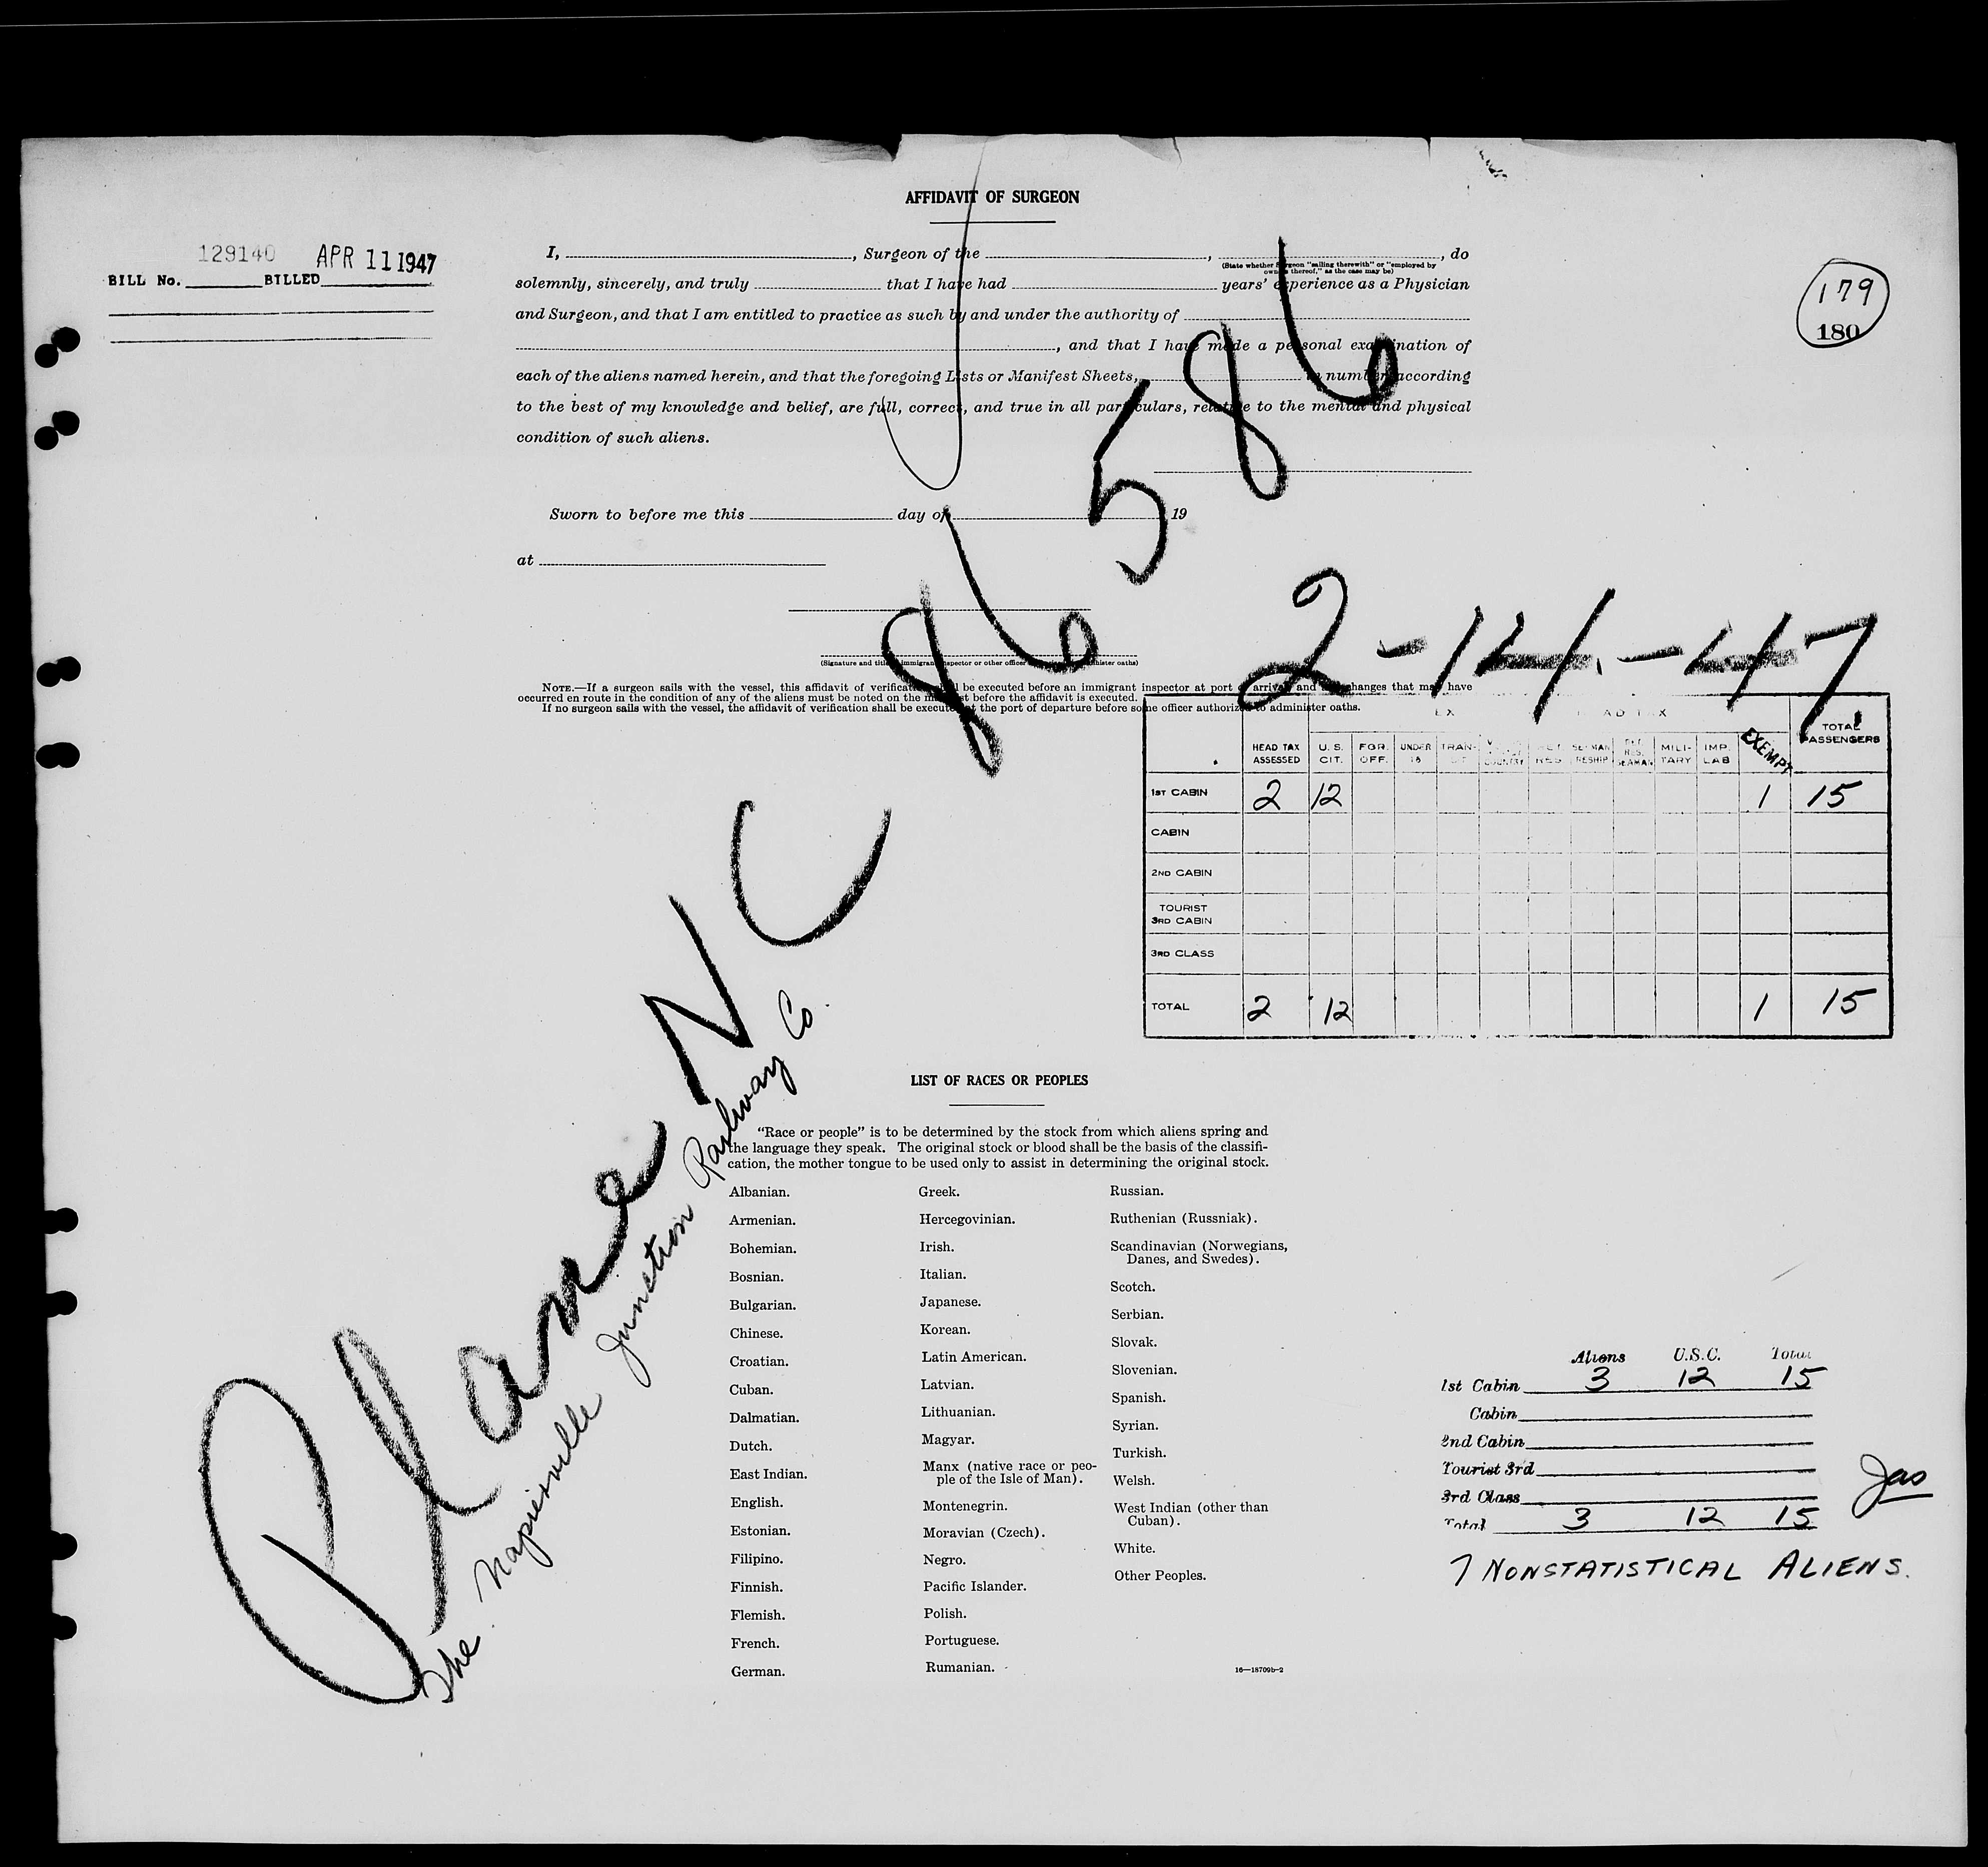 AFFIDAVIT OF SURGEON
129140 APR 11 1947
BILL No. BILLED
179
180
I, , Surgeon of the , , do
(State whether Surgeon "sailing therewith" or "employed by
owners thereof," as the case may be)
solemnly, sincerely, and truly that I have had years' experience as a Physician
and Surgeon, and that I am entitled to practice as such by and under the authority of
, and that I have made a personal examination of
each of the aliens named herein, and that the foregoing Lists or Manifest Sheets, in number, according
to the best of my knowledge and belief, are full, correct, and true in all particulars, relative to the mental and physical
condition of such aliens.
Sworn to before me this day of 19
at
(Signature and title of immigrant inspector or other officer administer oaths)
NOTE.—If a surgeon sails with the vessel, this affidavit of verification shall be executed before an immigrant inspector at port of arrival and any changes that may have
occurred en route in the condition of any of the aliens must be noted on the manifest before the affidavit is executed.
If no surgeon sails with the vessel, the affidavit of verification shall be executed at the port of departure before some officer authorized to administer oaths.
Plane NC 86586
The Napierville Junction Railway Co.
2-14-47
EX HEAD TAX
HEAD TAX ASSESSED U. S. CIT. FOR. OFF. UNDER 16 TRAN- RES SEAMAN RESHIP RES. SEAMAN MILI- TARY IMP. LAB EXEMPT TOTAL PASSENGERS
1ST CABIN 2 12 1 15
CABIN
2ND CABIN
TOURIST
3RD CABIN
3RD CLASS
TOTAL 2 12 1 15
LIST OF RACES OR PEOPLES
"Race or people" is to be determined by the stock from which aliens spring and
the language they speak. The original stock or blood shall be the basis of the classifi-
cation, the mother tongue to be used only to assist in determining the original stock.
Albanian.
Armenian.
Bohemian.
Bosnian.
Bulgarian.
Chinese.
Croatian.
Cuban.
Dalmatian.
Dutch.
East Indian.
English.
Estonian.
Filipino.
Finnish.
Flemish.
French.
German.
Greek.
Hercegovinian.
Irish.
Italian.
Japanese.
Korean.
Latin American.
Latvian.
Lithuanian.
Magyar.
Manx (native race or peo-
ple of the Isle of Man).
Montenegrin.
Moravian (Czech).
Negro.
Pacific Islander.
Polish.
Portuguese.
Rumanian.
Russian.
Ruthenian (Russniak).
Scandinavian (Norwegians,
Danes, and Swedes).
Scotch.
Serbian.
Slovak.
Slovenian.
Spanish.
Syrian.
Turkish.
Welsh.
West Indian (other than
Cuban).
White.
Other Peoples.
16—18709b-2
Aliens U.S.C. Total
1st Cabin 3 12 15
Cabin
2nd Cabin
Tourist 3rd
3rd Class
Total 3 12 15
Jas
7 NONSTATISTICAL ALIENS.